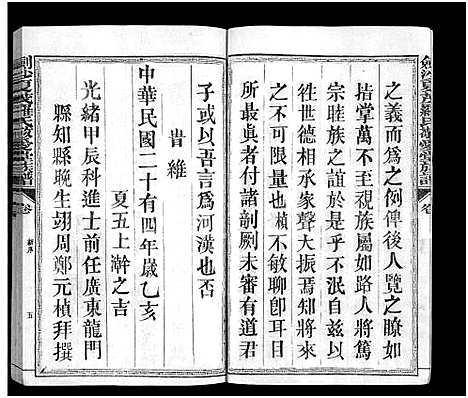 劍沙夏茂羅氏敬愛堂族譜
卷
之義而爲之例俾後人覽之瞭如
指掌萬不視族屬如路人將篤
宗睦族之誼於是乎不泯自茲以
徃世德相承家聲大振焉知將來
之不可限量也楨不敏聊卽耳目
所最眞者付諸剞劂未審有道君
子或以吾言爲河漢也否
旹維
中華民國二十有四年歲乙亥
夏五上澣之吉
光緒甲辰科進士前任廣東龍門
縣知縣晩生翊周鄭元楨拜撰
劍沙夏茂羅氏敬愛堂族譜
卷
五